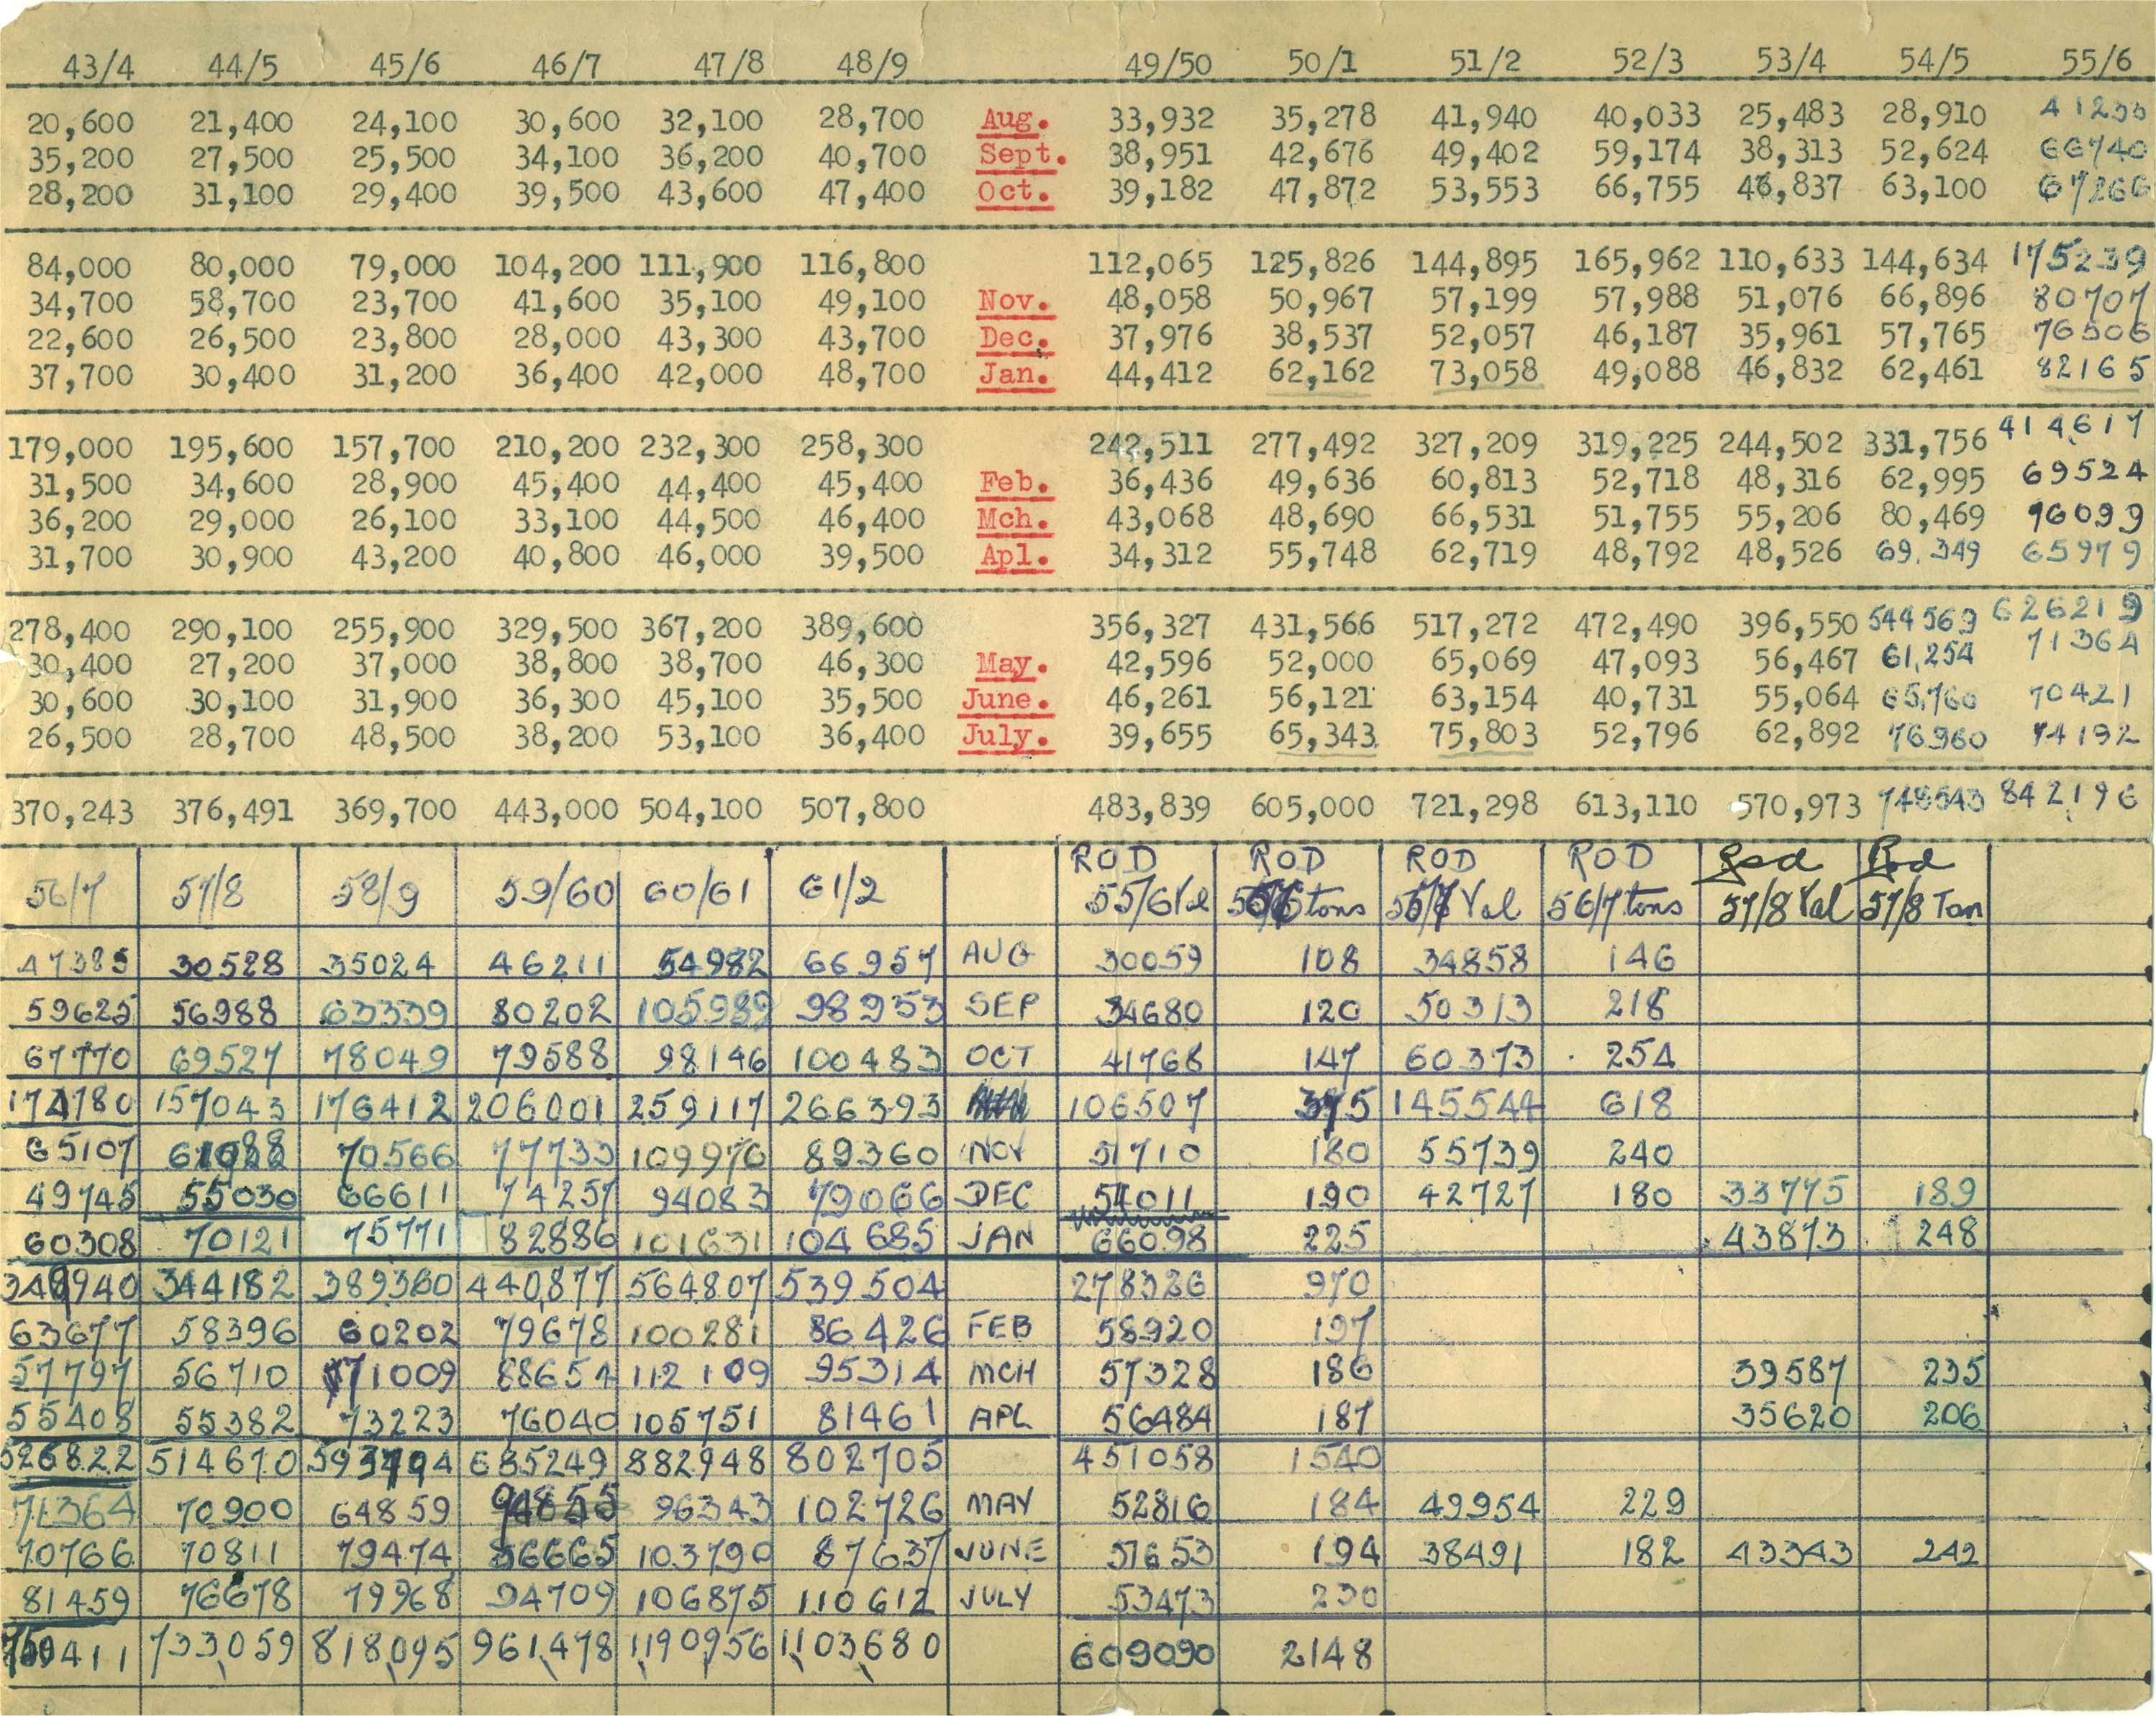 43/4 44/5 45/6 46/7 47/8 48/9 49/50 50/1 51/2 52/3 53/4 54/5 55/6
20,600 21,400 24,100 30,600 32,100 28,700 Aug. 33,932 35,278 41,940 40,033 25,483 28,910 41233
35,200 27,500 25,500 34,100 36,200 40,700 Sept. 38,951 42,676 49,402 59,174 38,313 52,624 66740
28,200 31,100 29,400 39,500 43,600 47,400 Oct. 39,182 47,872 53,553 66,755 46,837 63,100 67266
84,000 80,000 79,000 104,200 111,900 116,800 112,065 125,826 144,895 165,962 110,633 144,634 175239
34,700 58,700 23,700 41,600 35,100 49,100 Nov. 48,058 50,967 57,199 57,988 51,076 66,896 80707
22,600 26,500 23,800 28,000 43,300 43,700 Dec. 37,976 38,537 52,057 46,187 35,961 57,765 76506
37,700 30,400 31,200 36,400 42,000 48,700 Jan. 44,412 62,162 73,058 49,088 46,832 62,461 82165
179,000 195,600 157,700 210,200 232,300 258,300 242,511 277,492 327,209 319,225 244,502 331,756 414617
31,500 34,600 28,900 45,400 44,400 45,400 Feb. 36,436 49,636 60,813 52,718 48,316 62,995 69524
36,200 29,000 26,100 33,100 44,500 46,400 Mch. 43,068 48,690 66,531 51,755 55,206 80,469 76099
31,700 30,900 43,200 40,800 46,000 39,500 Apl. 34,312 55,748 62,719 48,792 48,526 69.349 65979
278,400 290,100 255,900 329,500 367,200 389,600 356,327 431,566 517,272 472,490 396,550 544569 626219
30,400 27,200 37,000 38,800 38,700 46,300 May. 42,596 52,000 65,069 47,093 56,467 61,254 71364
30,600 30,100 31,900 36,300 45,100 35,500 June. 46,261 56,121 63,154 40,731 55,064 65,760 70421
26,500 28,700 48,500 38,200 53,100 36,400 July. 39,655 65,343 75,803 52,796 62,892 76960 74192
370,243 376,491 369,700 443,000 504,100 507,800 483,839 605,000 721,298 613,110 570,973 748543 842196
56/7 57/8 58/9 59/60 60/61 61/2 ROD 55/6 Val ROD tons ROD Val ROD 56/7 tons Rod 57/8 Val Rod 57/8 Ton
47385 30528 35024 46211 54982 66957 AUG 30059 108 34858 146
59625 56988 63339 80202 105989 98953 SEP 34680 120 50313 218
67770 69527 78049 79588 98146 100483 OCT 41768 147 60373 254
174780 157043 176412 206001 259117 266393 106507 375 145544 618
65107 70566 77733 109976 89360 NOV 51710 180 55739 240
49745 55030 66611 74257 94083 79066 DEC 54011 190 42727 180 33775 189
60308 70121 75771 82886 101631 104685 JAN 66098 225 43873 248
349940 344182 389360 440,877 564807 539504 278326 970
63677 58396 60202 79678 100281 86426 FEB 58920 197
57797 56710 71009 88654 112109 95314 MCH 57328 186 39587 235
55408 55382 73223 76040 105751 81461 APL 56484 187 35620 206
526822 514670 685249 882948 802705 451058 1540
71364 70900 64859 94855 96343 102726 MAY 52816 184 49954 229
70766 70811 79474 86665 103790 87637 JUNE 51653 194 38491 182 43343 242
81459 76678 79968 94709 106875 110612 JULY 53473 230
733,059 818,095 961,478 1190,956 1103,680 609090 2148